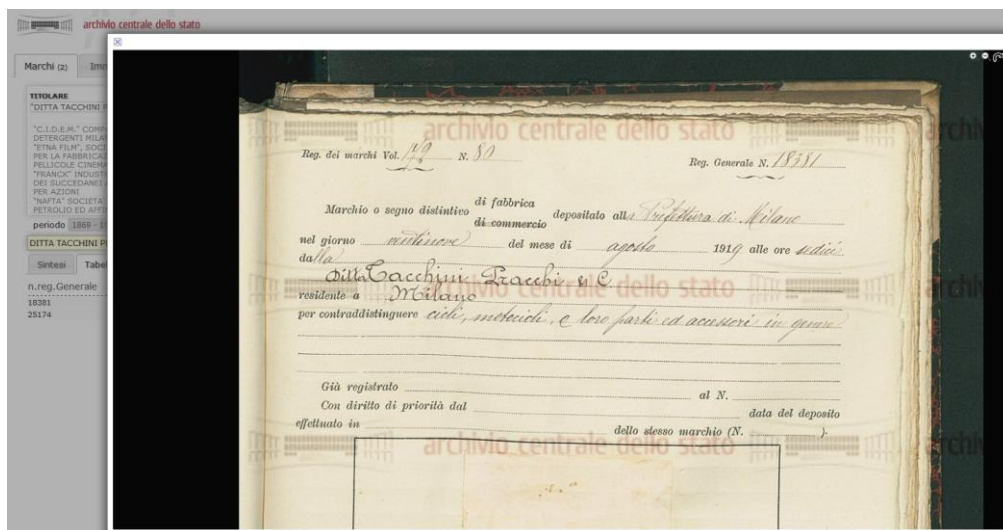 archivio centrale dello stato
Marchi (2) Imm
TITOLARE
"DITTA TACCHINI P
"C.I.D.E.M." COMP
DETERGENTI MILA
"ETNA FILM", SOCI
PER LA FABBRICA
PELLICOLE CINEMA
"FRANCK" INDUST
DEI SUCCEDANEI
PER AZIONI
"NAFTA" SOCIETA'
PETROLIO ED AFFI
periodo 1869 - 1
DITTA TACCHINI P
Sintesi Tabel
n.reg.Generale
18381
25174
archivio centrale dello stato
archi
Reg. dei marchi Vol. 179 N. 80 Reg. Generale N. 18381
Marchio o segno distintivo di fabbrica di commercio depositato alla Prefettura di Milano
nel giorno ventinove del mese di agosto 1919 alle ore sedici
dalla
Ditta Tacchini Pracchi & C.
residente a Milano
archivio centrale dello stato
archi
per contraddistinguere cicli, motocicli, e loro parti ed accessori in genere
Già registrato al N.
Con diritto di priorità dal data del deposito
effettuato in dello stesso marchio (N. ).
archivio centrale dello stato
archi